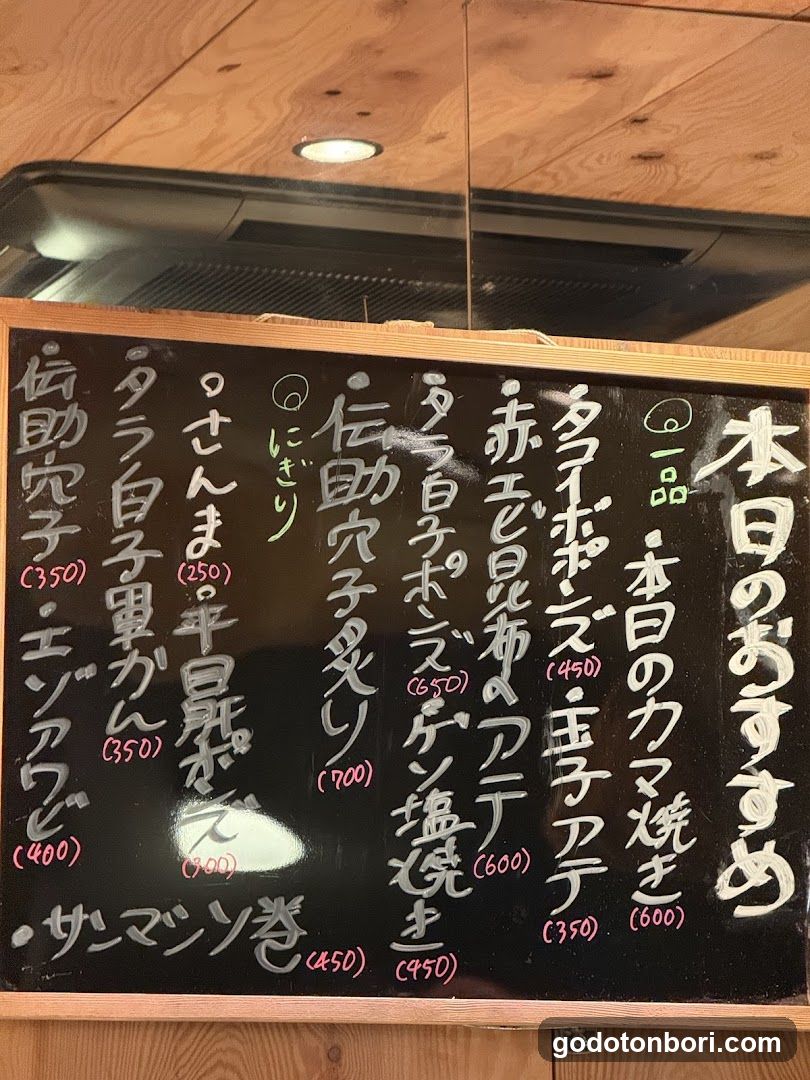 本日のおすすめ
◎一品
・本日のカマ焼き(600)
・タコイボポンズ(450)
・玉子アテ(350)
・赤エビ昆布のアテ(600)
・タラ白子ポンズ(650)
・ゲソ塩焼き(450)
・伝助穴子炙り(700)
◎にぎり
・さんま(250)
・平目肝ポンズ(300)
・タラ白子軍かん(350)
・伝助穴子(350)
・エゾアワビ(400)
・サンマシソ巻(450)
godotonbori.com